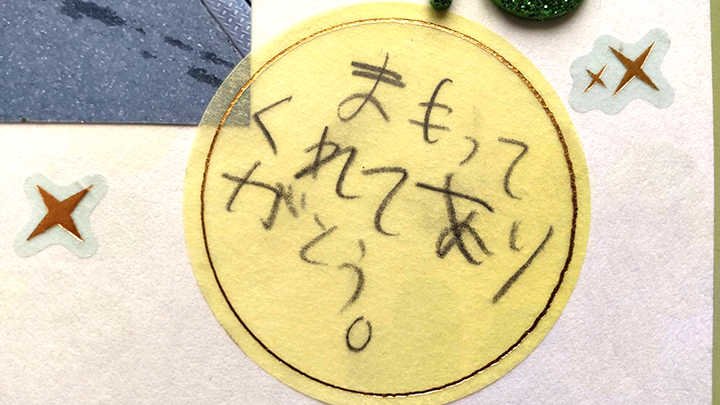 まもって
くれてあり
がとう。